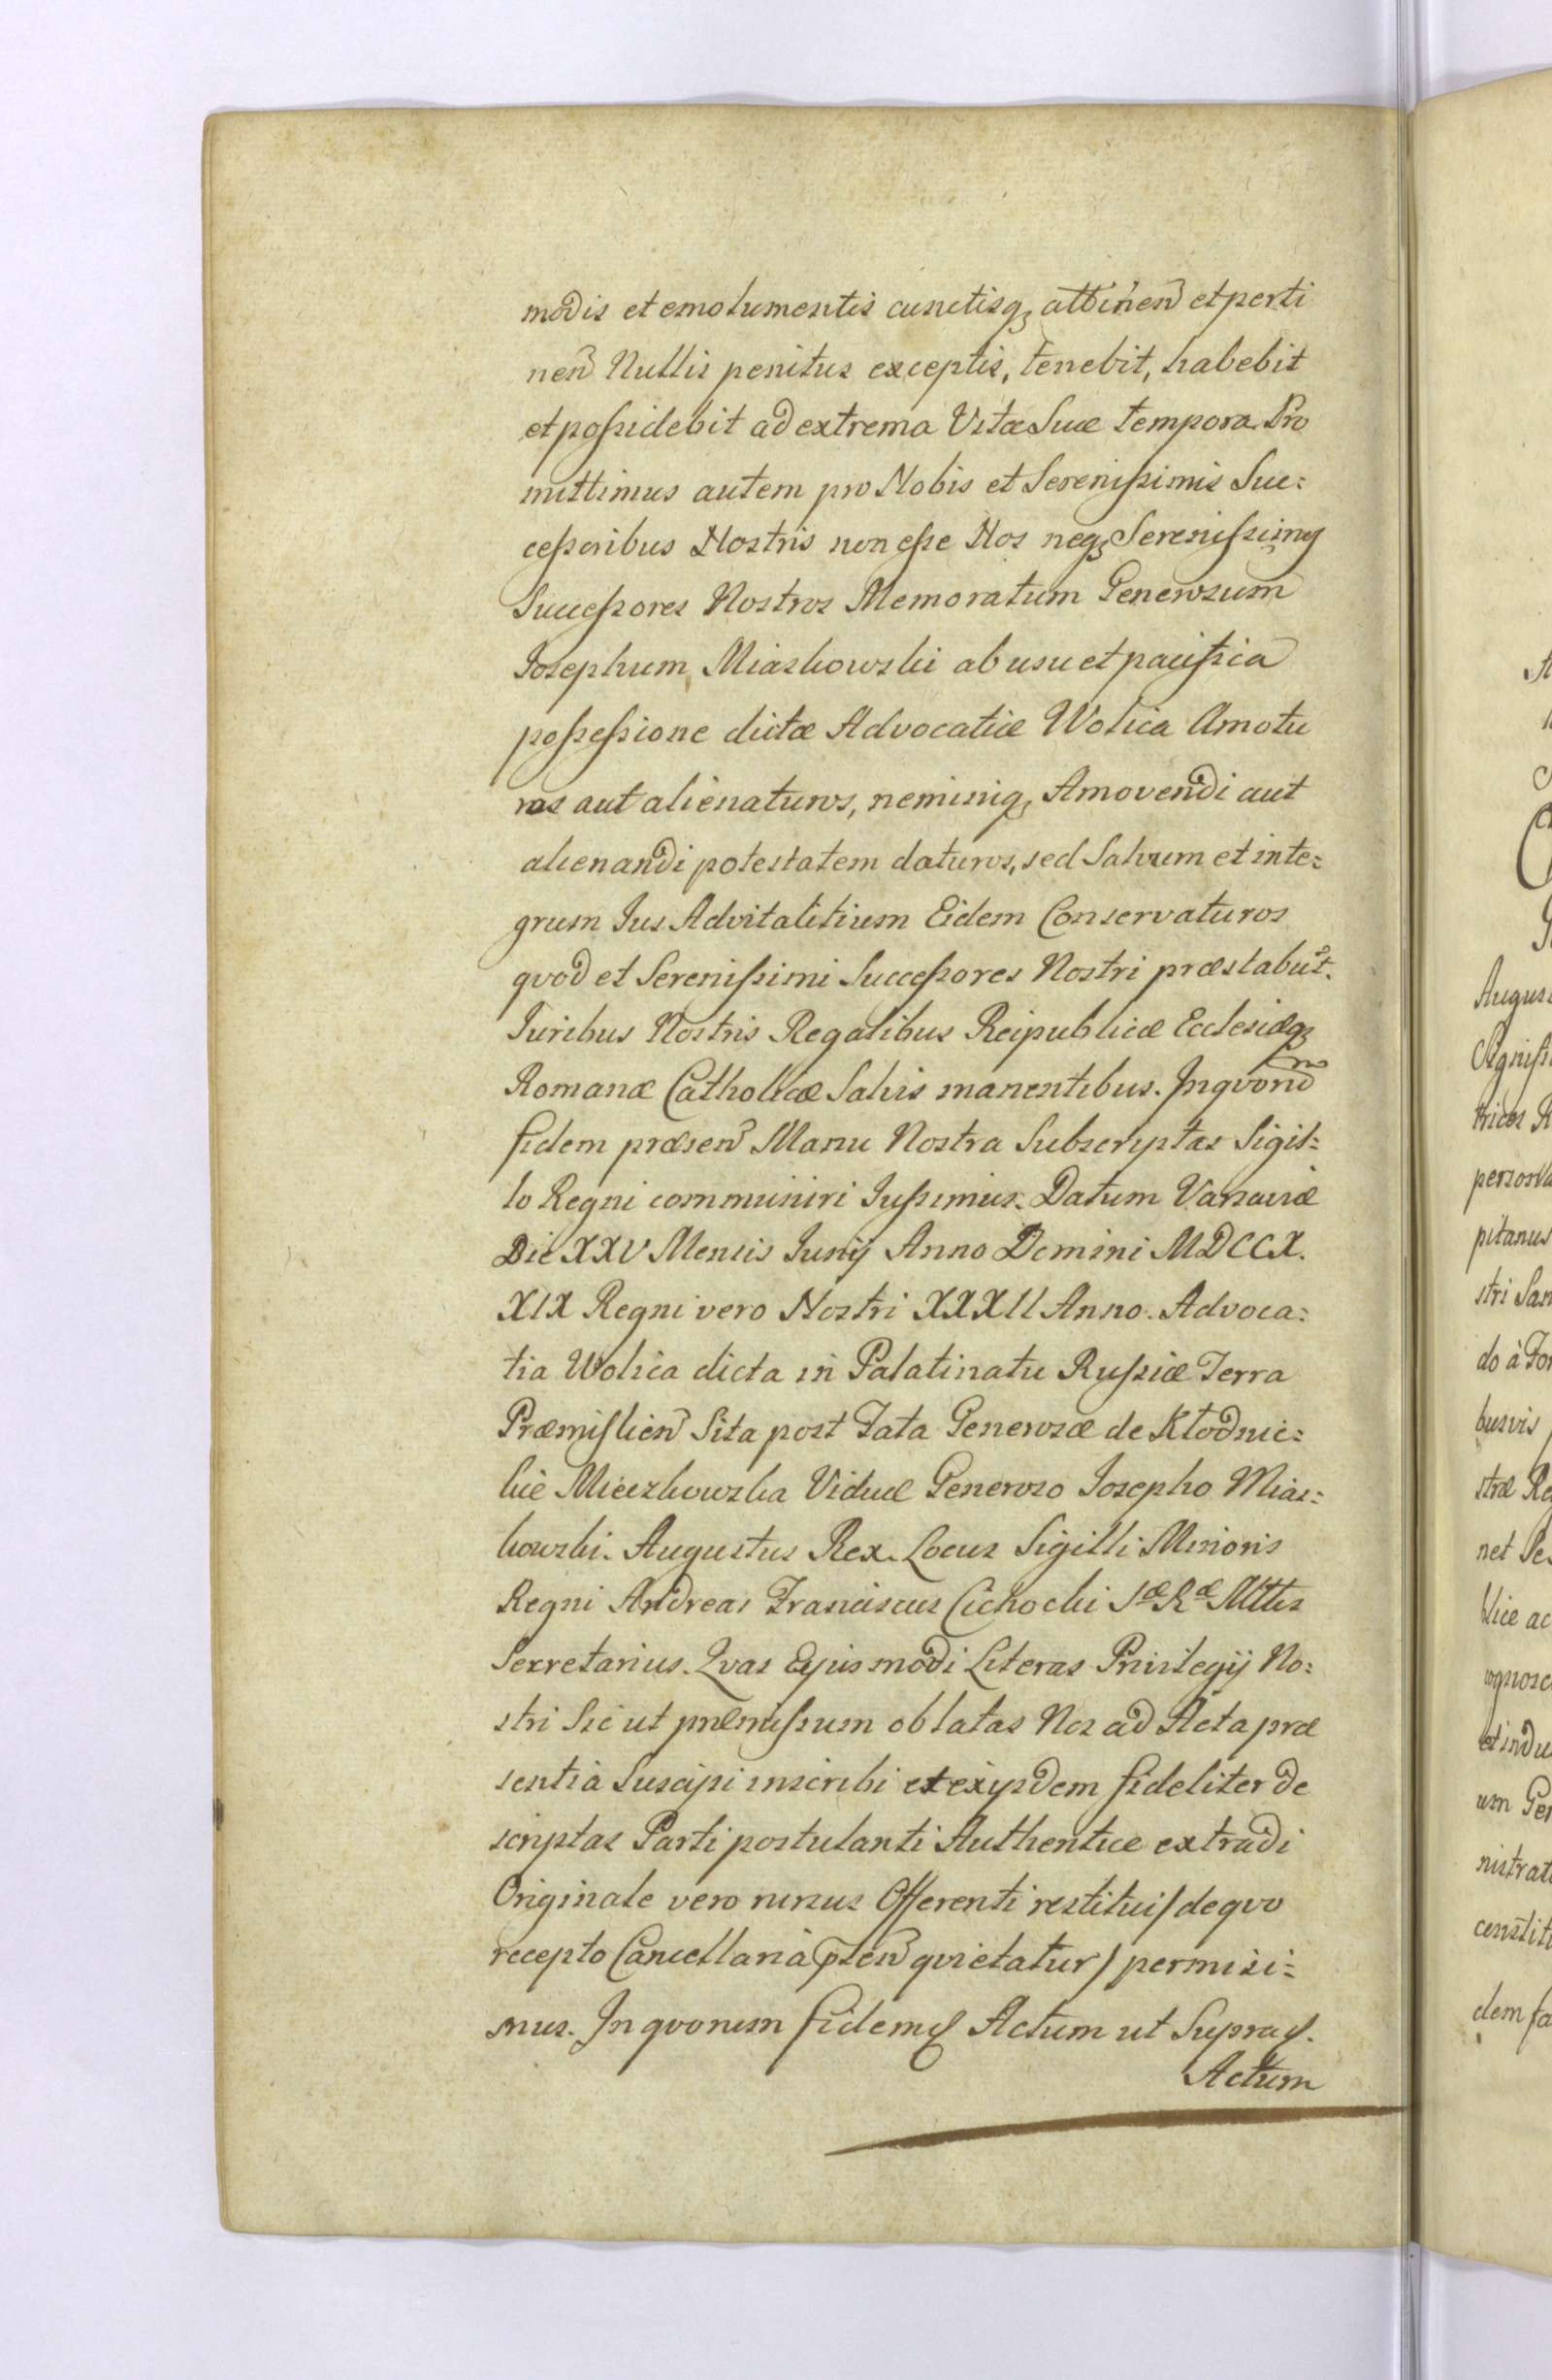 modis et emolumentis cunctisq₃ attinen̄ et perti
nen̄ Nullis penitus exceptis, tenebit, habebit
et poſsidebit ad extrema Vitæ Suæ tempora. Pro
mittimus autem pro Nobis et Sereniſsimis Suc:
ceſsoribus Nostris non eſse Nos neq₃ Sereniſsimos
Succeſsores Nostros Memoratum Generosum
Josephum Miaskowski ab usu et pacifica
poſseſsione dictæ Advocatiæ Wolica Amotu
ros aut alienaturos, neminiq₃ Amovendi aut
alienandi potestatem daturos, sed Salvum et inte:
grum Jus Advitalitium Eidem Conservaturos
qvod et Sereniſsimi Succeſsores Nostri præstabūt.
Juribus Nostris Regalibus Reipublicæ Ecclesiæq₃
Romanæ Catholicæ Salvis manentibus. In qvorū
fidem præsen̄ Manu Nostra Subscriptas Sigil:
lo Regni communiri Juſsimus. Datum Varsaviæ
Die XXV Mensis Junij Anno Domini MDCCX.
XIX Regni vero Nostri XXXII Anno. Advoca:
tia Wolica dicta in Palatinatu Ruſsiæ Terra
Præmiſlien̄ Sita post Fata Generosæ de Kłodnic:
kie Mieczkowska Viduæ Generoso Josepho Mias:
kowski. Augustus Rex. Locus Sigilli Minoris
Regni Andreas Franciscus Cichocki Sæ Ræ Mttis
Secretarius. Qvas Ejusmodi Literas Privilegij No:
stri Sic ut præmiſsum oblatas Nos ad Acta præ
sentia Suscipi inscribi et ex ijsdem fideliter de
scriptas Parti postulanti Authentice extradi
Originale vero rursus Offerenti restitui / de qvo
recepto Cancellaria p̄ten̄ qvietatur / permisi:
mus. In qvorum fidem Actum ut Supra.
Actum